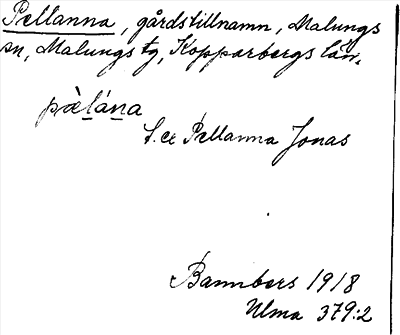 Pellanna, gårdstillnamn, Malungs
sn, Malungs tg, Kopparbergs län.
pæ̀lána
T.ex Pellanna Jonas
Bannbers 1918
Ulma 379:2